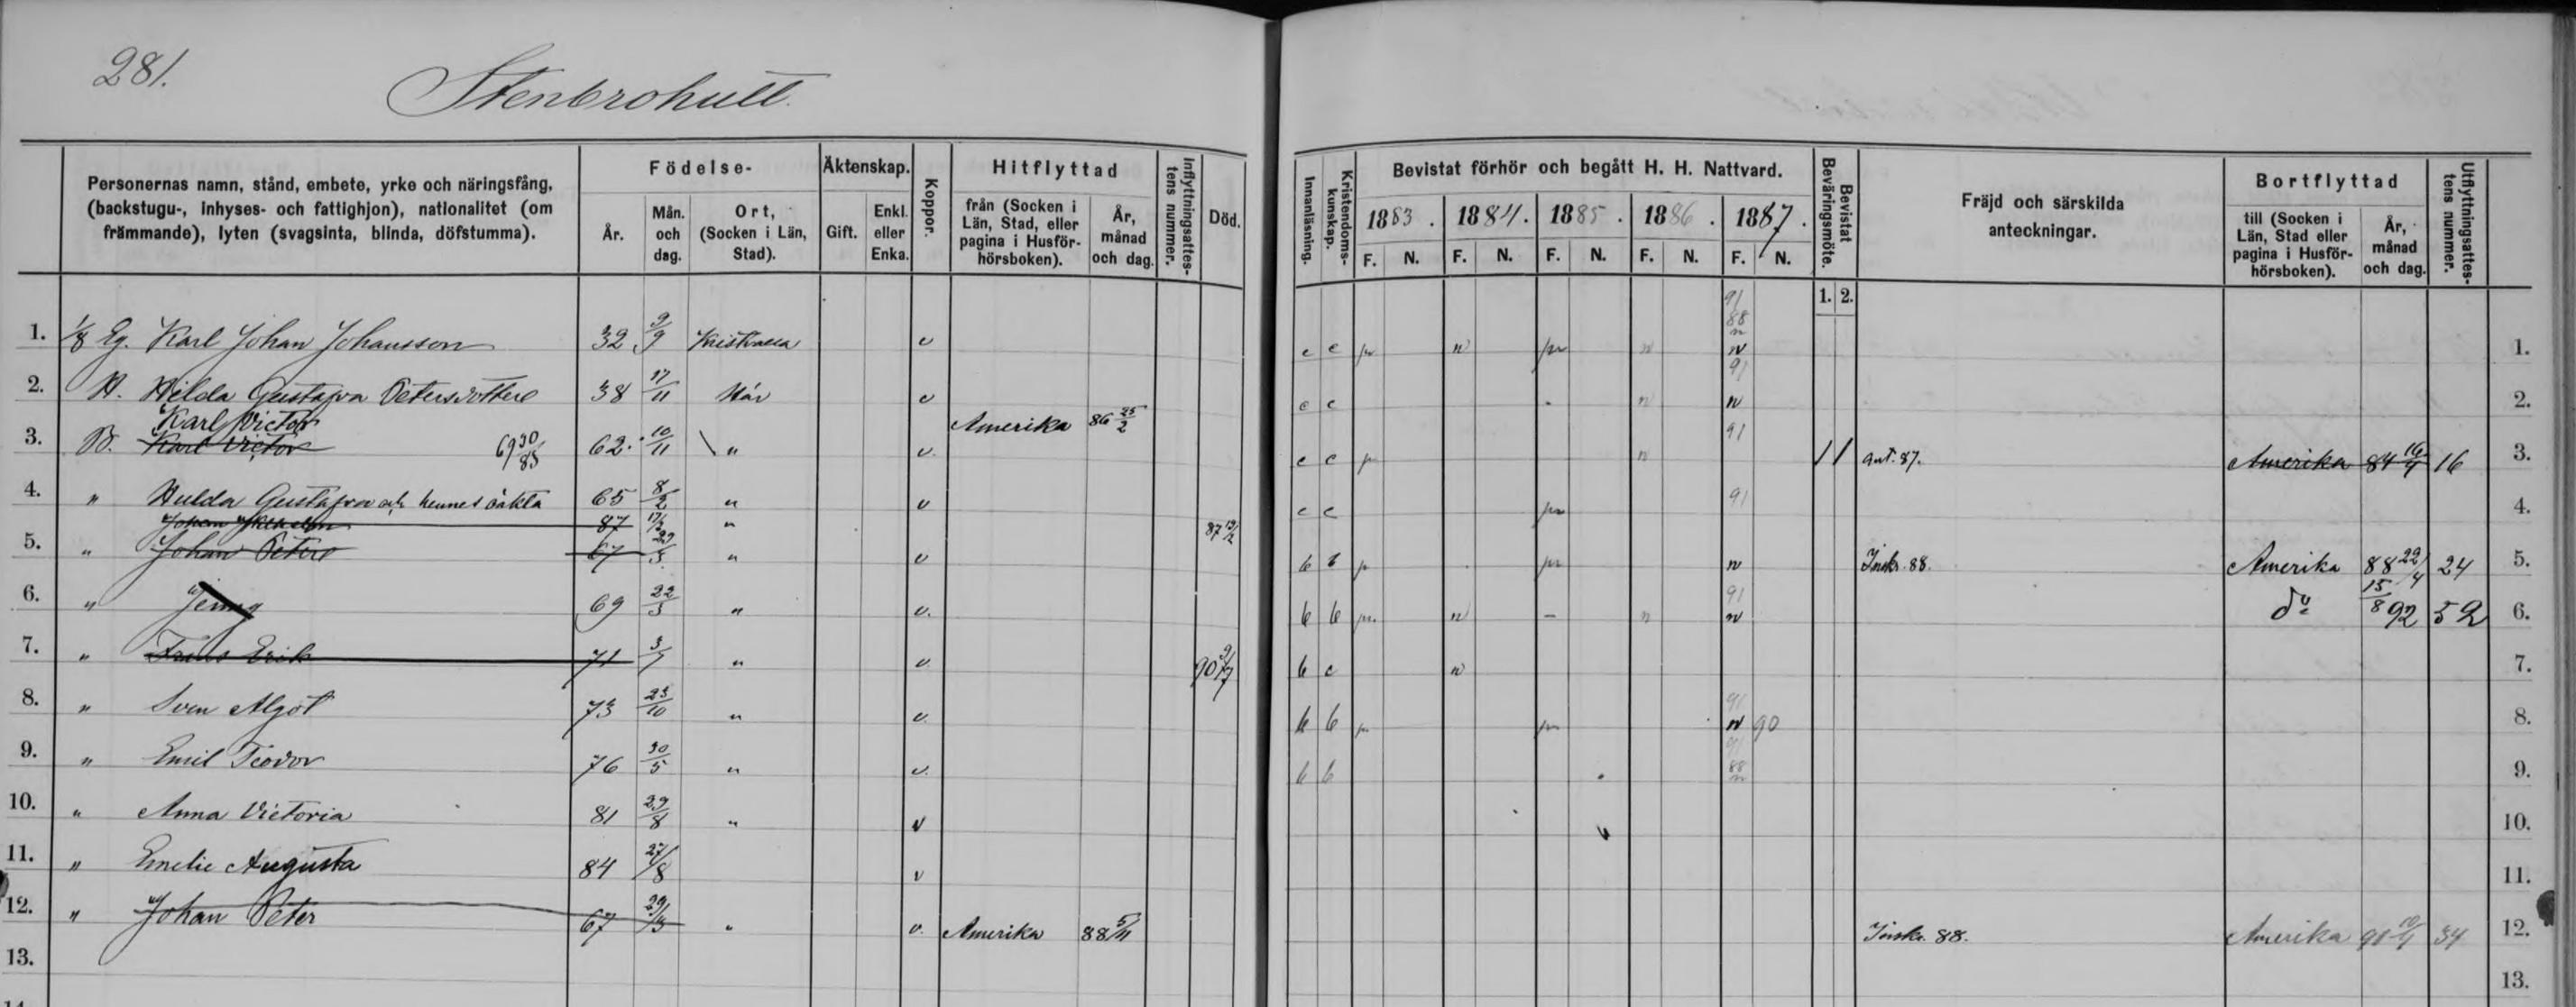 281.
Stenbrohult.
Personernas namn, stånd, embete, yrke och näringsfång, (backstugu-, inhyses- och fattighjon), nationalitet (om främmande), lyten (svagsinta, blinda, döfstumma).
Födelse-
År.
Mån. och dag.
Ort, (Socken i Län, Stad).
Äktenskap.
Gift.
Enkl. eller Enka.
Koppor.
Hitflyttad
från (Socken i Län, Stad, eller pagina i Husförhörsboken).
År, månad och dag.
Inflyttningsattestens nummer.
Död.
Innanläsning.
Kristendomskunskap.
Bevistat förhör och begått H. H. Nattvard.
1883. 1884. 1885. 1886. 1887.
F. N. F. N. F. N. F. N. F. N.
Bevistat Beväringsmöte.
1. 2.
Fräjd och särskilda anteckningar.
Bortflyttad
till (Socken i Län, Stad eller pagina i Husförhörsboken).
År, månad och dag.
Utflyttningsattestens nummer.
1. 1/8 Eg. Karl Johan Johansson 32 9/9 v c c pr n pr n 91 88 n n 1.
2. H. Hilda Gustafva Petersdotter 38 17/11 Här v c c n 91 n 2.
Karl Victor Amerika 86 25/2
3. B. Karl Victor 62 10/11 " v. c c p n 91 1 1 ant. 87. Amerika 84 16/4 16 3.
4. " Hulda Gustafva och hennes oäkta 65 8/2 " v c c pr 91 4.
Johan Vilhelm 87 " 87 19/2
5. " Johan Peter 67 29/3 " v b b p pr n Inskr. 88. Amerika 88 22/4 24 5.
6. " Jenny 69 22/3 " v. b b pr. n – n 91 n do 15/8 92 52 6.
7. " Frans Erik 71 3/7 " v. 90 9/7 b c n 7.
8. " Sven Algot 73 23/10 " v. b b p pr 91 n 90 8.
9. " Emil Teodor 76 30/5 " v. b b 91 88 n 9.
10. " Anna Victoria 81 29/8 " v 10.
11. " Emelie Augusta 84 27/8 v 11.
12. " Johan Peter 67 29/3 " v. Amerika 88 5/11 Inskr. 88. Amerika 34 12.
13. 13.